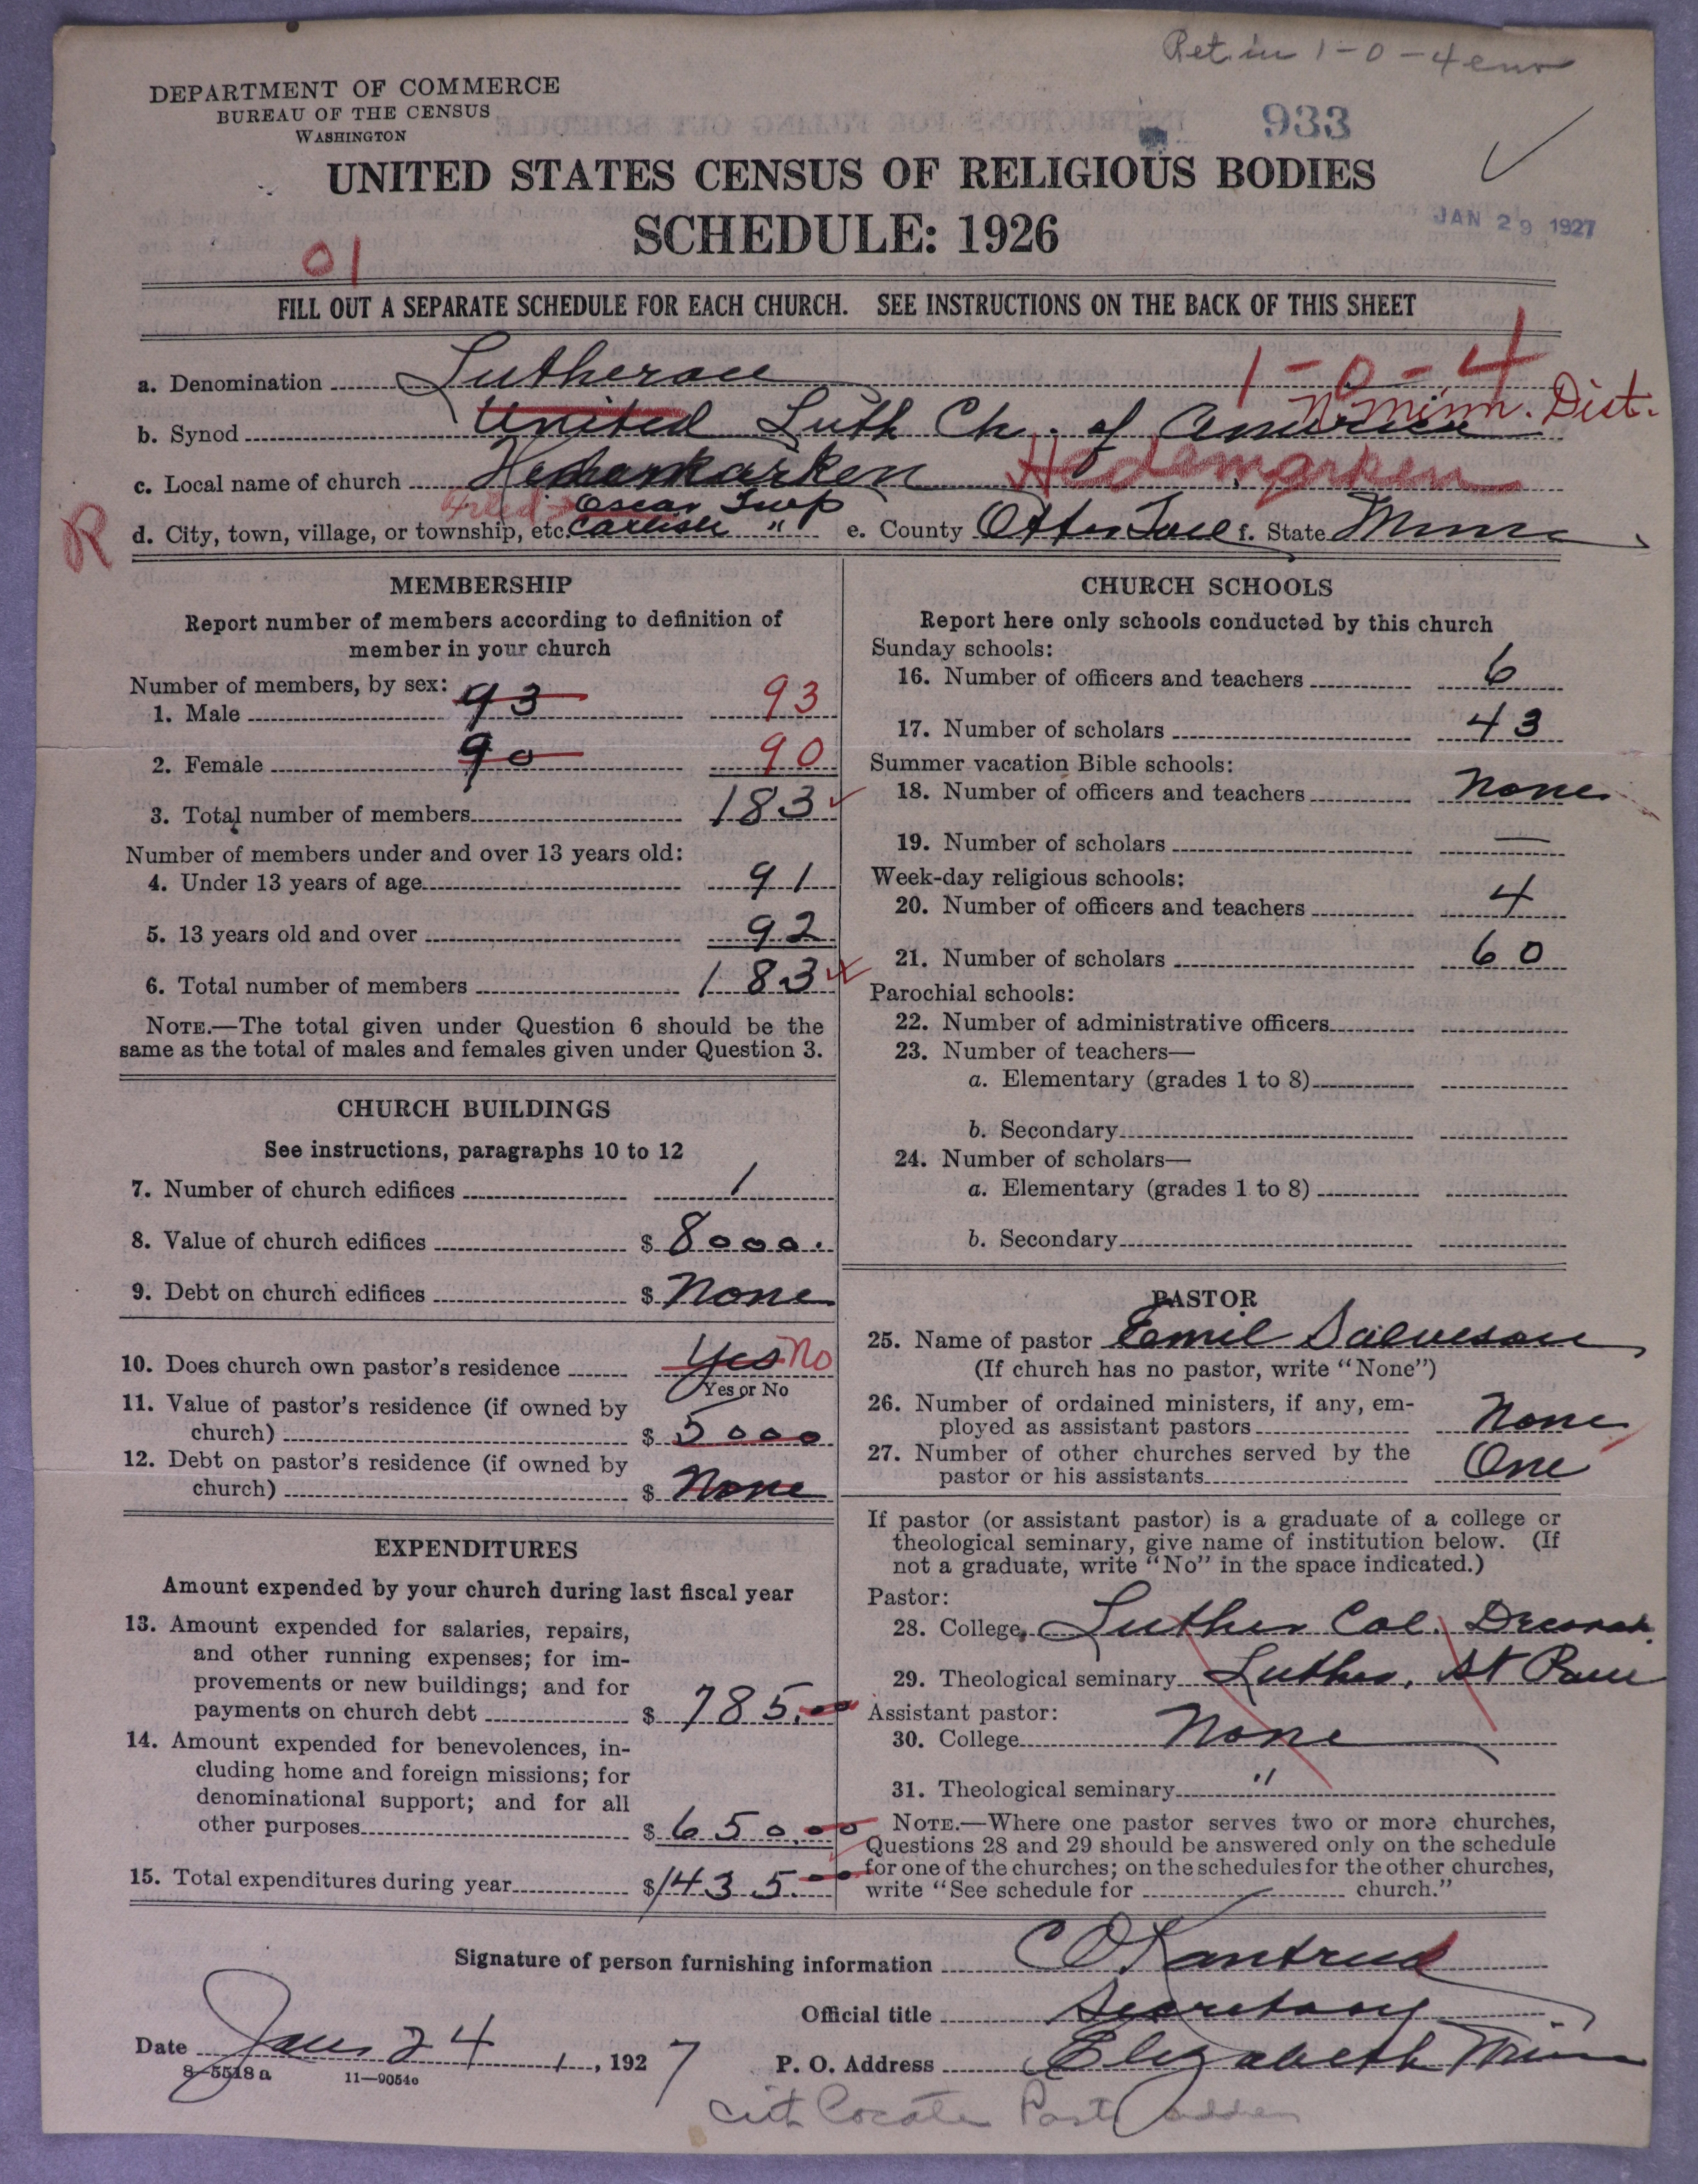 Ret. in 1-0-4
DEPARTMENT OF COMMERCE
BUREAU OF THE CENSUS
WASHINGTON
933
UNITED STATES CENSUS OF RELIGIOUS BODIES
SCHEDULE: 1926
JAN 29 1927
01
FILL OUT A SEPARATE SCHEDULE FOR EACH CHURCH. SEE INSTRUCTIONS ON THE BACK OF THIS SHEET
1-0-4
a. Denomination Lutheran
N. Minn. Dist.
b. Synod United Luth Ch. of America
c. Local name of church Hedemarken Hedemarken
Oscar Twp
R
d. City, town, village, or township, etc. Carlisle " e. County Otter Tail f. State Minn
MEMBERSHIP
Report number of members according to definition of
member in your church
Number of members, by sex:
1. Male 93 93
2. Female 90 90
3. Total number of members 183
Number of members under and over 13 years old:
4. Under 13 years of age 91
5. 13 years old and over 92
6. Total number of members 183
NOTE.—The total given under Question 6 should be the
same as the total of males and females given under Question 3.
CHURCH BUILDINGS
See instructions, paragraphs 10 to 12
7. Number of church edifices 1
8. Value of church edifices $ 8000.
9. Debt on church edifices $ None
10. Does church own pastor's residence Yes No
Yes or No
11. Value of pastor's residence (if owned by
church) $ 5000
12. Debt on pastor's residence (if owned by
church) $ None
EXPENDITURES
Amount expended by your church during last fiscal year
13. Amount expended for salaries, repairs,
and other running expenses; for im-
provements or new buildings; and for
payments on church debt $ 785.00
14. Amount expended for benevolences, in-
cluding home and foreign missions; for
denominational support; and for all
other purposes $ 650.00
15. Total expenditures during year $ 1435.00
CHURCH SCHOOLS
Report here only schools conducted by this church
Sunday schools:
16. Number of officers and teachers 6
17. Number of scholars 43
Summer vacation Bible schools:
18. Number of officers and teachers None
19. Number of scholars —
Week-day religious schools:
20. Number of officers and teachers 4
21. Number of scholars 60
Parochial schools:
22. Number of administrative officers
23. Number of teachers—
a. Elementary (grades 1 to 8)
b. Secondary
24. Number of scholars—
a. Elementary (grades 1 to 8)
b. Secondary
PASTOR
25. Name of pastor Emil Salveson
(If church has no pastor, write "None")
26. Number of ordained ministers, if any, em-
ployed as assistant pastors None
27. Number of other churches served by the
pastor or his assistants One
If pastor (or assistant pastor) is a graduate of a college or
theological seminary, give name of institution below. (If
not a graduate, write "No" in the space indicated.)
Pastor:
28. College Luther Col. Decorah
29. Theological seminary Luther, St Paul
Assistant pastor:
30. College None
31. Theological seminary "
NOTE.—Where one pastor serves two or more churches,
Questions 28 and 29 should be answered only on the schedule
for one of the churches; on the schedules for the other churches,
write "See schedule for church."
Signature of person furnishing information C O Kantrud
Official title Secretary
Date Jan 24, 1927
P. O. Address Elizabeth Minn
8-5518 a 11—9054c